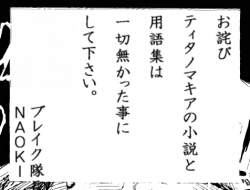 お詫び
ティタノマキアの小説と
用語集は
一切無かった事に
して下さい。
ブレイク隊
NAOKI